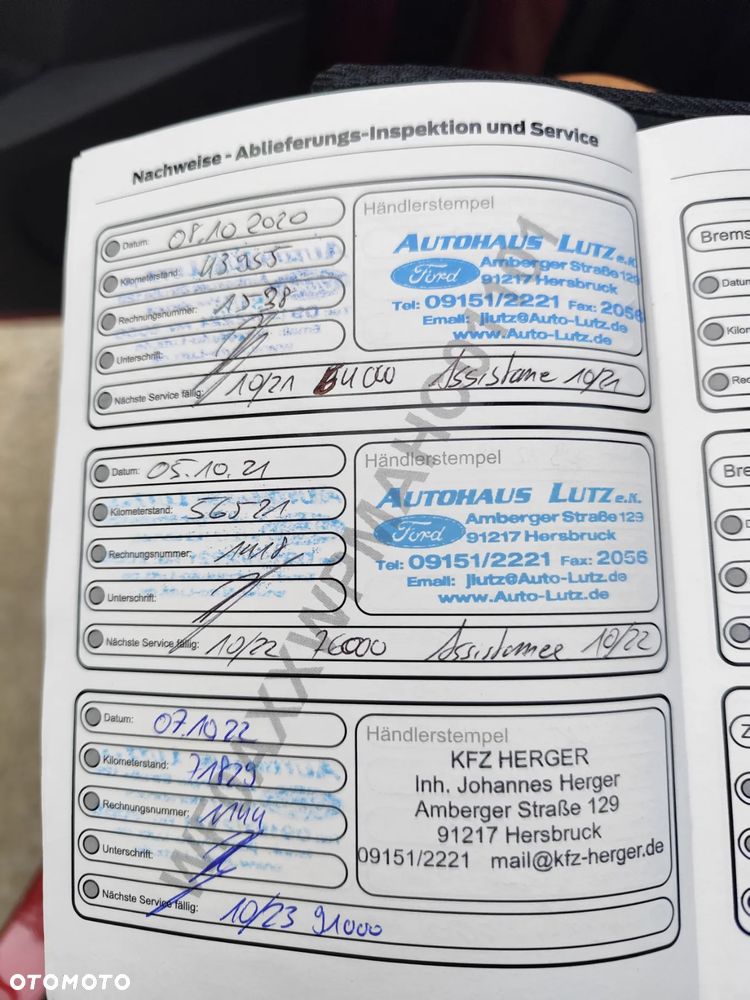 Nachweise - Ablieferungs-Inspektion und Service
Datum: 08.10 2020
Kilometerstand: 43955
Rechnungsnummer:
Unterschrift:
Nächste Service fällig: 10/21 54000 Assistance 10/21
Händlerstempel
AUTOHAUS LUTZ e.K.
Ford
Amberger Straße 129
91217 Hersbruck
Tel: 09151/2221 Fax: 2056
Email: jlutz@Auto-Lutz.de
www.Auto-Lutz.de
Datum: 05.10.21
Kilometerstand: 56521
Rechnungsnummer: 1418
Unterschrift:
Nächste Service fällig: 10/22 76000 Assistance 10/22
Händlerstempel
AUTOHAUS LUTZ e.K.
Ford
Amberger Straße 129
91217 Hersbruck
Tel: 09151/2221 Fax: 2056
Email: jlutz@Auto-Lutz.de
www.Auto-Lutz.de
Datum: 07.10.22
Kilometerstand: 71829
Rechnungsnummer: 1144
Unterschrift:
Nächste Service fällig: 10/23 91000
Händlerstempel
KFZ HERGER
Inh. Johannes Herger
Amberger Straße 129
91217 Hersbruck
09151/2221 mail@kfz-herger.de
Brems
Datun
Kilon
Rec
Bre
OTOMOTO